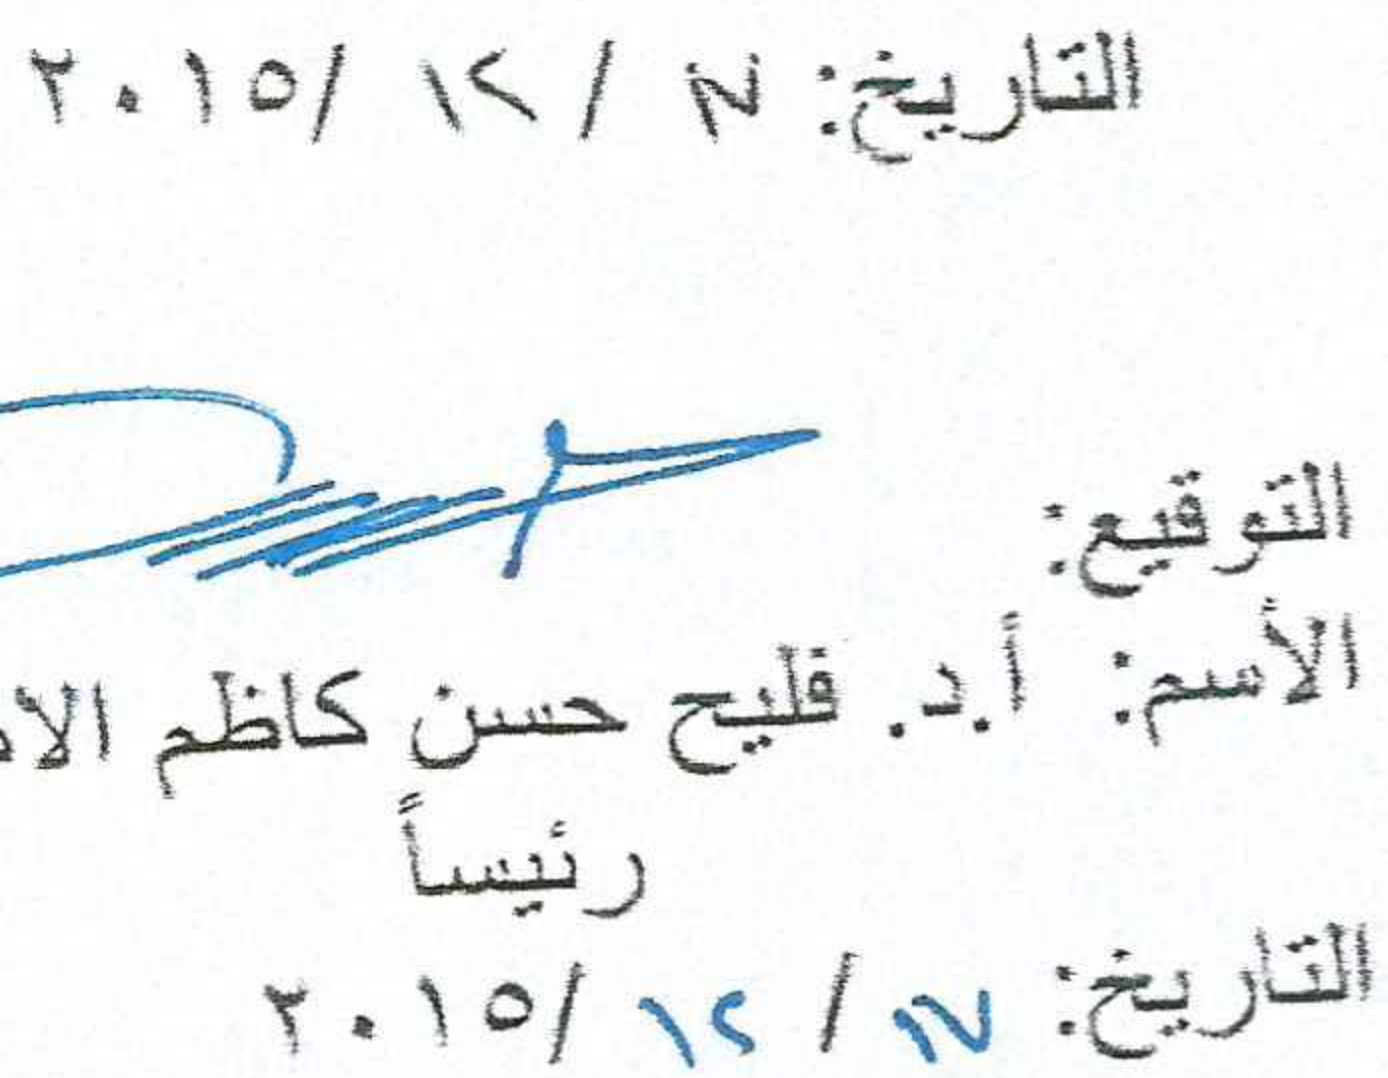 التاريخ: ١٧ / ١٢ /٢٠١٥
التوقيع:
الأسم: أ.د. فليح حسن كاظم
رئيساً
التاريخ: ١٧ / ١٢ /٢٠١٥